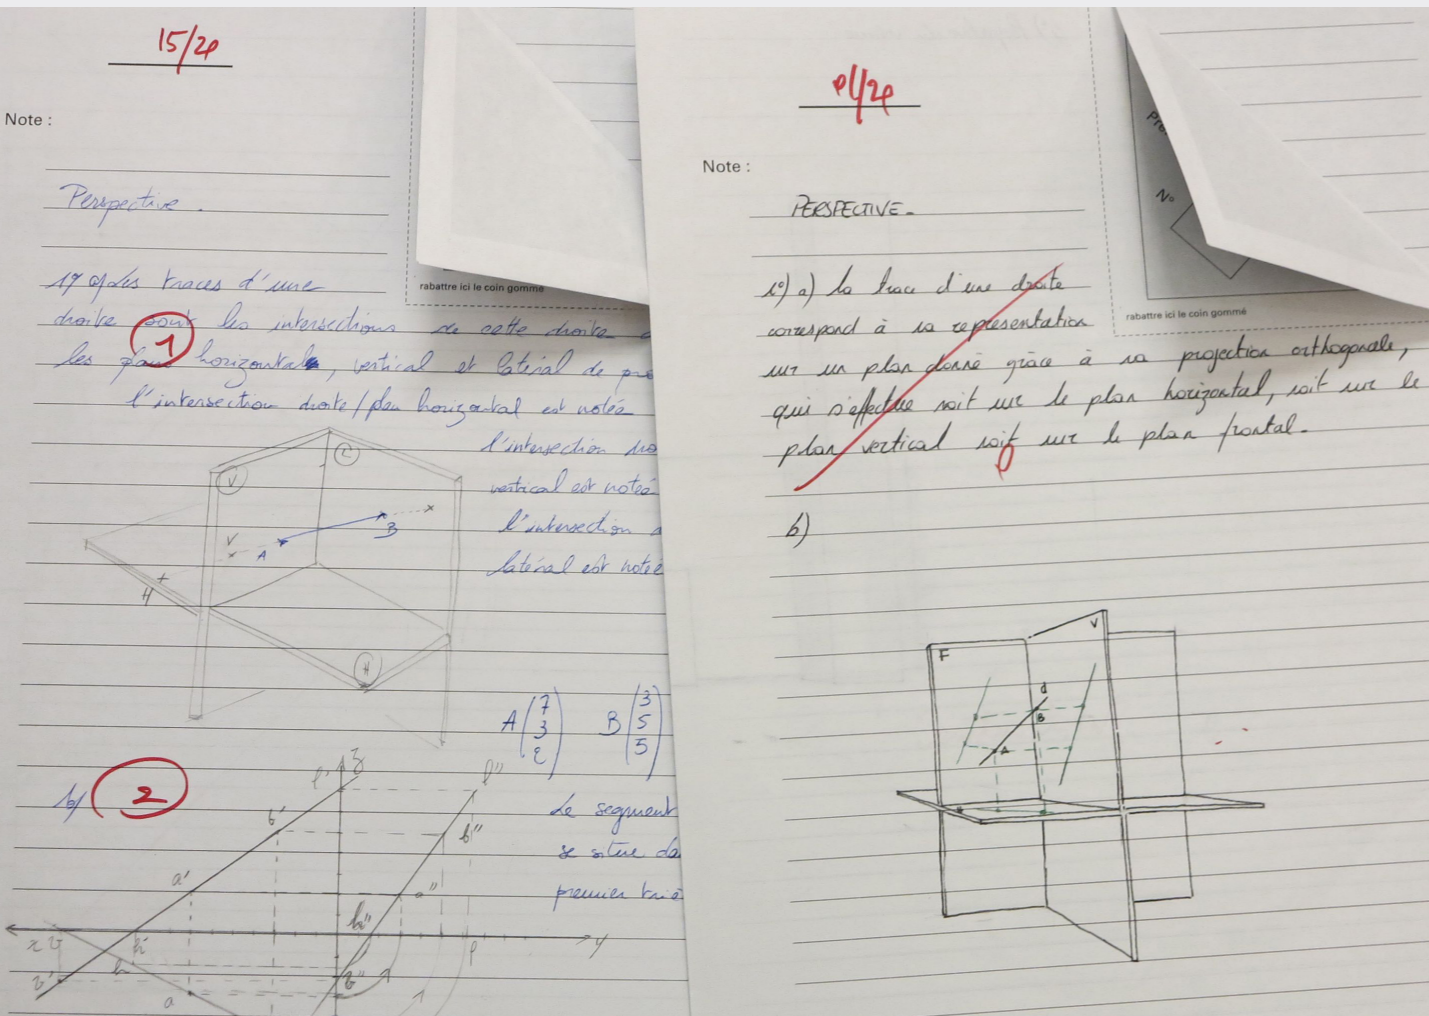 15/20
Note :
Perspective.
rabattre ici le coin gommé
1°) a) Les traces d'une
droite sont les intersections de cette droite
1
les plans horizontal, vertical et latéral de
l'intersection droite/plan horizontal est notée
l'intersection
vertical est notée
l'intersection
latéral est notée
V
L
V
A
B
H
H
A (7 3 2) B (3 5 5)
b)
2
Le segment
se situe
premier
l' z l''
b' b''
a' a''
h''
x v h' y
v' h v''
a
/20
Note :
PERSPECTIVE.
Pré
N°
rabattre ici le coin gommé
1°) a) La trace d'une droite
correspond à sa représentation
sur un plan donné grâce à sa projection orthogonale,
qui s'effectue soit sur le plan horizontal, soit sur le
plan vertical soit sur le plan frontal.
0
b)
F
V
d
B
A